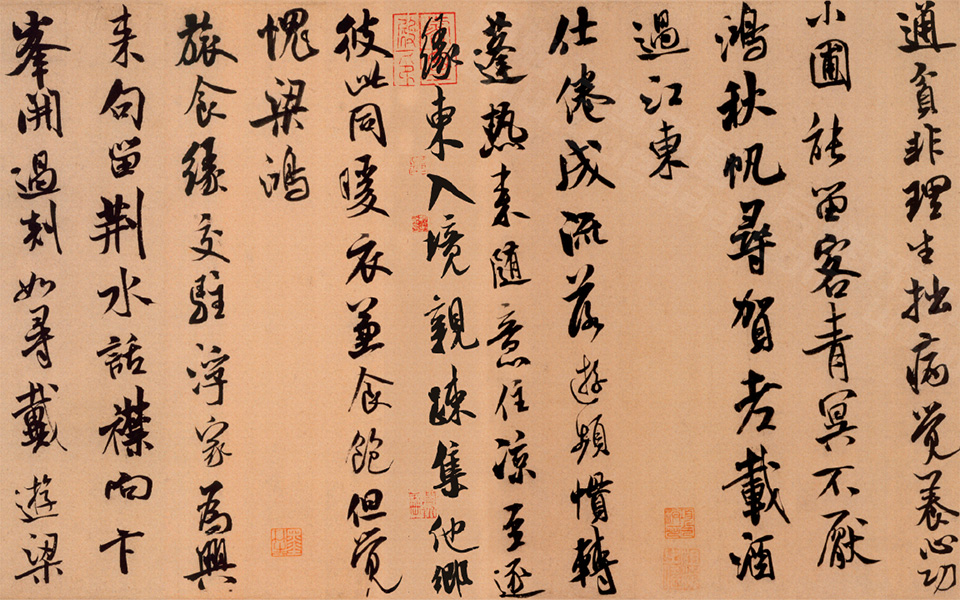 通貧非理生拙病覺養心功
小圃能留客青冥不厭
鴻秋帆尋賀老載酒
過江東
仕倦成流落遊頻慣轉
蓬熱來隨意住涼至逐
緣東入境親疎集他鄉
彼此同暖衣兼食飽但覺
愧梁鴻
旅食緣交駐浮家為興
來句留荊水話襟向卞
峯開過剡如尋戴遊梁